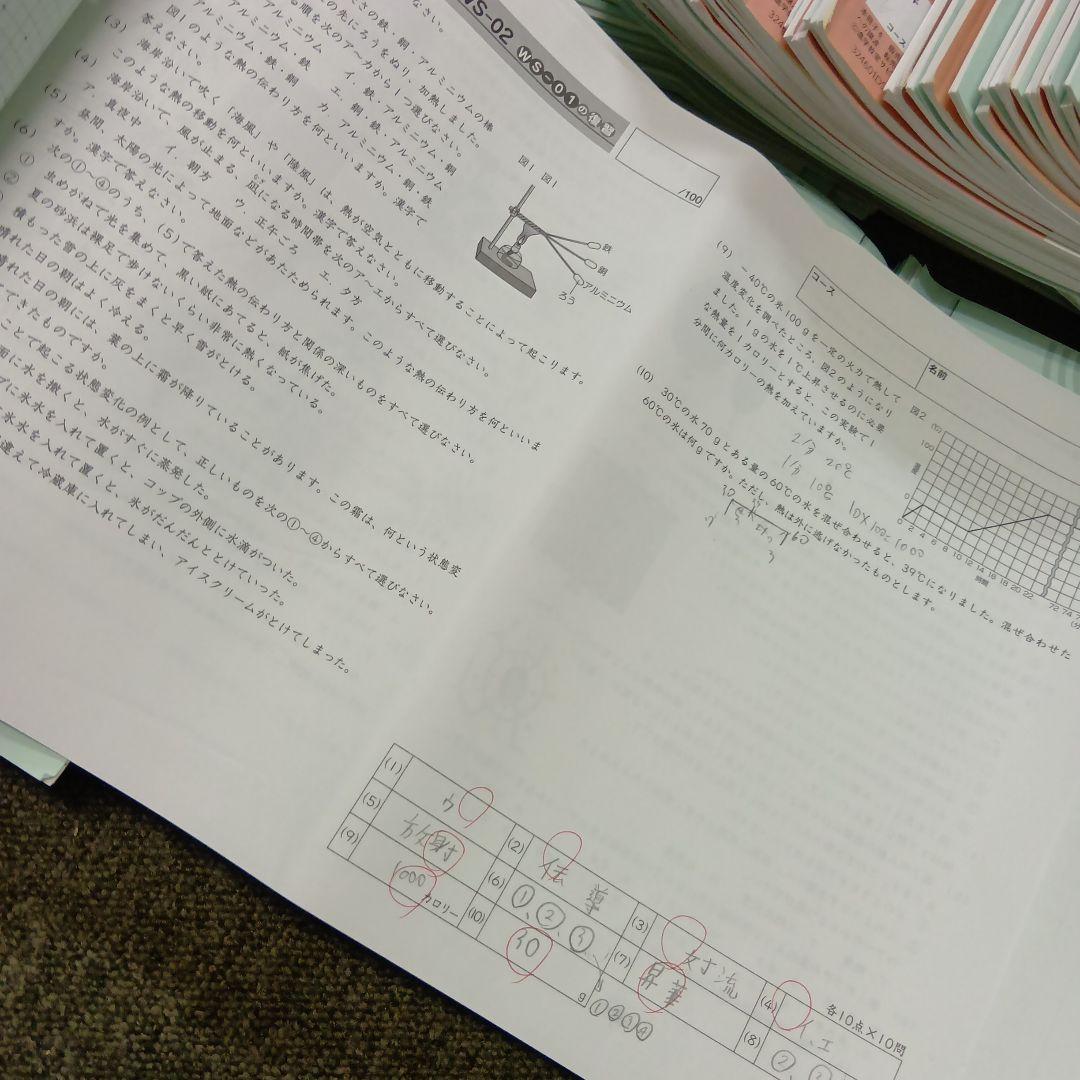 WS-02 WS-01の復習
/100
さの鉄・銅・アルミニウムの棒
の先にろうをぬり、加熱しました。
る順を次のア〜カから1つ選びなさい。
イ．鉄・アルミニウム・銅
エ．銅・鉄・アルミニウム
カ．アルミニウム・銅・鉄
図1のような熱の伝わり方を何といいますか。漢字で
答えなさい。
(3) 海岸沿いで吹く「海風」や「陸風」は、熱が空気とともに移動することによって起こります。
このような熱の移動を何といいますか。漢字で答えなさい。
(4) 海岸沿いで、風が止まる、凪になる時間帯を次のア〜エからすべて選びなさい。
ア．真夜中 イ．朝方 ウ．正午ごろ エ．夕方
(5) 昼間、太陽の光によって地面などがあたためられます。このような熱の伝わり方を何といいま
すか。漢字で答えなさい。
(6) 次の①〜④のうち、(5)で答えた熱の伝わり方と関係の深いものをすべて選びなさい。
① 虫めがねで光を集めて、黒い紙にあてると、紙が焦げた。
② 夏の砂浜は裸足で歩けないくらい非常に熱くなっている。
積もった雪の上に灰をまくと早く雪がとける。
晴れた日の朝はよく冷える。
晴れた日の朝には、葉の上に霜が降りていることがあります。この霜は、何という状態変
てきたものですか。
ことで起こる状態変化の例として、正しいものを次の①〜④からすべて選びなさい。
面に水を撒くと、水がすぐに蒸発した。
プに氷水を入れて置くと、コップの外側に水滴がついた。
氷水を入れて置くと、氷がだんだんととけていった。
違えて冷蔵庫に入れてしまい、アイスクリームがとけてしまった。
図1 図1
鉄
銅
アルミニウム
ろう
コース
名前
(9) －40℃の氷100gを一定の火力で熱して
温度変化を調べたところ、図2のようになり
ました。1gの水を1℃上昇させるのに必要
な熱量を1カロリーとすると、この実験で1
分間に何カロリーの熱を加えていますか。
2分 20℃
1分 10℃
10×100=1000
図2
100
0
0 2 4 6 8 10 12 14 16 18 20 22 72 74
時間
(10) 30℃の水70gとある量の60℃の水を混ぜ合わせると、39℃になりました。混ぜ合わせた
60℃の水は何gですか。ただし、熱は外に逃げなかったものとします。
30
60
3
(1) ウ
(2) 伝導
(3) 対流
(4) イ、エ
(5) 放射
(6) ①、②、③
(7) 昇華
(8) ②、
(9) 1000 カロリー
(10) 30 g
①②③④
各10点×10問